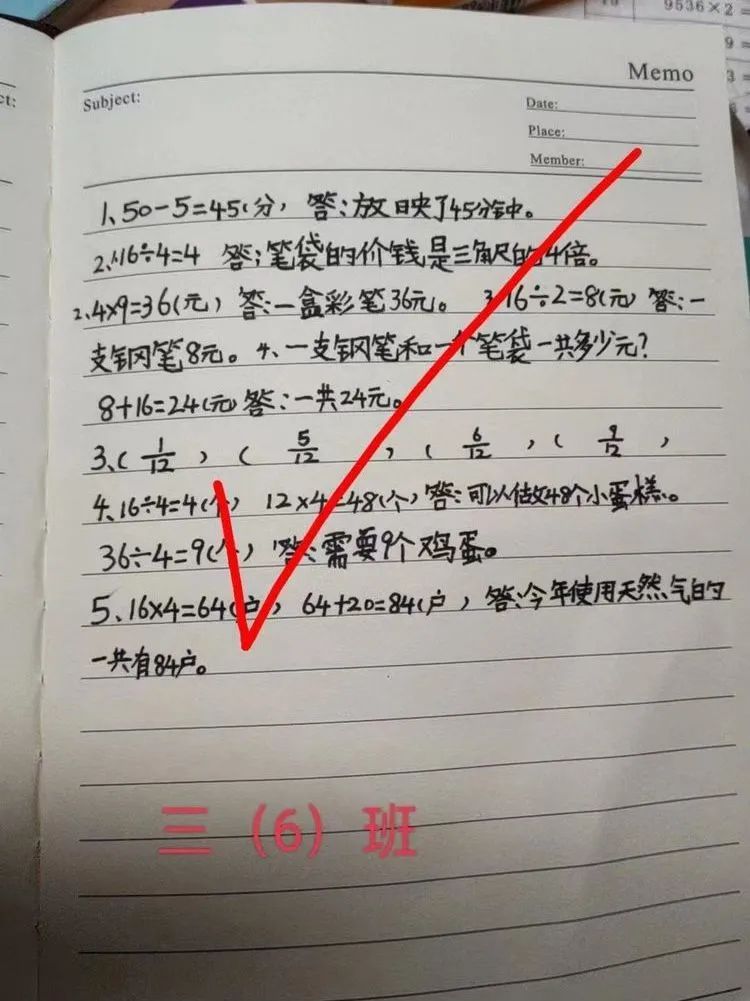 9536×2=
9=
3=
=
ct:
Memo
Subject:
Date:
Place:
Member:
1、50-5=45(分) 答:放映了45分钟。
2、1、16÷4=4 答:笔袋的价钱是三角尺的4倍。
2、4×9=36(元) 答:一盒彩笔36元。 3、16÷2=8(元) 答:一
支钢笔8元。 4、一支钢笔和一个笔袋一共多少元?
8+16=24(元) 答:一共24元。
3、( 1/12 ) ( 5/12 ) ( 6/12 ) ( 9/12 )
4、16÷4=4(个) 12×4=48(个) 答:可以做48个小蛋糕。
36÷4=9(个) 答:需要9个鸡蛋。
5、16×4=64(户) 64+20=84(户) 答:今年使用天然气的
一共有84户。
三(6)班